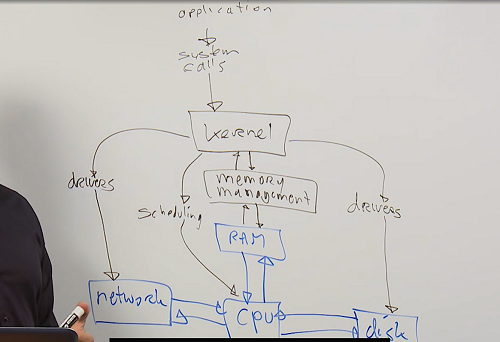 application
system
calls
kernel
memory
management
drivers
scheduling
drivers
RAM
network
cpu
disk